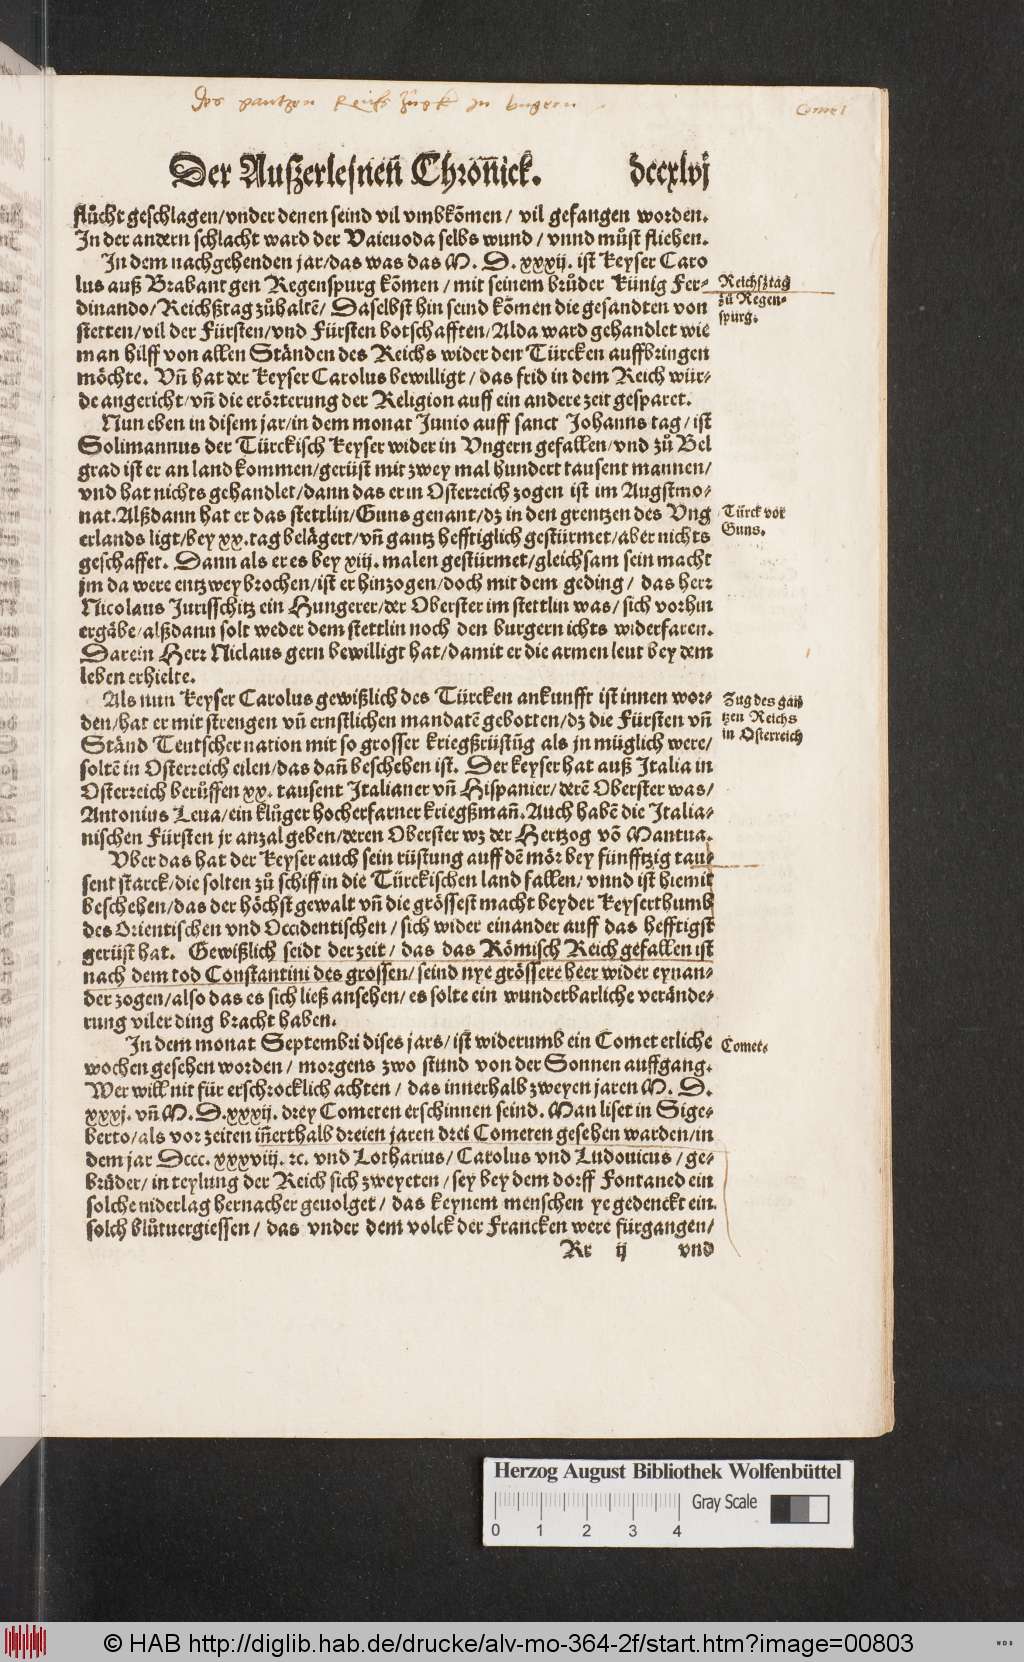 Des gantzen Reichs Zugk in Ungern
Comet
Der Außerlesneñ Chroñick. dccxlvj
flůcht geschlagen/vnder denen seind vil vmbkõmen/ vil gefangen worden.
In der andern schlacht ward der Vaieuoda selbs wund/vnnd můst fliehen.
In dem nachgehenden jar/das was das M. D. xxxij. ist Keyser Caro
lus auß Brabant gen Regenspurg kõmen/mit seinem brůder Künig Fer-
dinando/Reichßtag zůhaltẽ/ Daselbst hin seind kõmen die gesandten von
stetten/vil der Fürsten/vnd Fürsten botschafften/Alda ward gehandlet wie
man hilff von allen Ständen des Reichs wider den Türcken auffbringen
möchte. Vñ hat der Keyser Carolus bewilligt/das frid in dem Reich wür-
de angericht/vñ die erörterung der Religion auff ein andere zeit gesparet.
Reichsztag
zů Regen-
spurg.
Nun eben in disem jar/in dem monat Junio auff sanct Johanns tag/ist
Solimannus der Türckisch Keyser wider in Vngern gefallen/vnd zů Bel
grad ist er an land kommen/gerüst mit zwey mal hundert tausent mannen/
vnd hat nichts gehandlet/dann das er in Osterreich zogen ist im Augstmo-
nat. Alßdann hat er das stettlin/Guns genant/dz in den grentzen des Vng
erlands ligt/bey xx. tag belägert/vñ gantz hefftiglich gestürmet/aber nichts
geschaffet. Dann als er es bey xiij. malen gestürmet/gleichsam sein macht
jm da were entzwey brochen/ist er hinzogen/doch mit dem geding/ das herr
Nicolaus Jurisschitz ein Hungerer/der Oberster im stettlin was/sich vorhin
ergäbe/alßdann solt weder dem stettlin noch den burgern ichts widerfaren.
Darein Herr Niclaus gern bewilligt hat/damit er die armen leut bey dem
leben erhielte.
Türck vor
Guns.
Als nun Keyser Carolus gewißlich des Türcken ankunfft ist innen wor-
den/hat er mit strengen vñ ernstlichen mandatẽ gebotten/dz die Fürsten vñ
Ständ Teutscher nation mit so grosser kriegßrüstũg als jn müglich were/
soltẽ in Osterreich eilen/das dañ beschehen ist. Der keyser hat auß Italia in
Osterreich berüffen xx. tausent Italianer vñ Hispanier/derẽ Oberster was/
Antonius Leua/ein klůger hocherfarner kriegßmañ. Auch habẽ die Italia-
nischen Fürsten jr anzal geben/deren Oberster wz der Hertzog võ Mantua.
Zug des gañ
tzen Reichs
in Osterreich
Vber das hat der Keyser auch sein rüstung auff dẽ mör bey fünfftzig tau-
sent starck/die solten zů schiff in die Türckischen land fallen/vnnd ist hiemit
beschehen/das der höchst gewalt vñ die grössest macht beyder Keyserthumb
des Orientischen vnd Occidentischen/sich wider einander auff das hefftigst
gerüst hat. Gewißlich seidt der zeit/ das das Römisch Reich gefallen ist
nach dem tod Constantini des grossen/seind nye grössere heer wider eynan-
der zogen/also das es sich ließ ansehen/es solte ein wunderbarliche verände-
rung viler ding bracht haben.
In dem monat Septembri dises jars/ist widerumb ein Comet etliche
wochen gesehen worden/ morgens zwo stund von der Sonnen auffgang.
Wer will nit für erschrocklich achten/ das innerhalb zweyen jaren M. D.
xxxj. vñ M. D. xxxij. drey Cometen erschinnen seind. Man liset in Sige-
berto/als vor zeiten iñerthalb dreien jaren drei Cometen gesehen warden/in
dem jar Dccc. xxxviij. ꝛc. vnd Lotharius/ Carolus vnd Ludouicus/ ge-
brůder/in teylung der Reich sich zweyeten/sey bey dem dorff Fontaned ein
solche niderlag hernacher geuolget/ das keynem menschen ye gedenckt ein
solch blůtuergiessen/ das vnder dem volck der Francken were fürgangen/
Comet.
Rr ij vnd
Herzog August Bibliothek Wolfenbüttel
Gray Scale
0 1 2 3 4
© HAB http://diglib.hab.de/drucke/alv-mo-364-2f/start.htm?image=00803